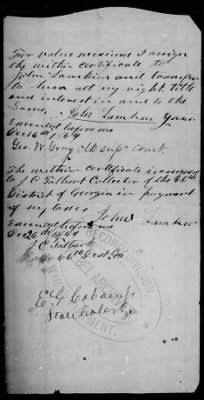 For value received I assign
the within certificate to
John Lambin and transfer
to him all my right, title
and interest in and to the
Same. John Lambin Guar
Executed before me
Dec 16th 1864
Geo. W. Gray Clk Supr Court
The within certificate is assigned
to J C Talbert Collector of the 66th
District of Georgia in payment
of my taxes John Lambin
Executed before me
Dec 26th 1864
J C Talbert
66th Dist. Ga
E G Cabaniss
State Collector Ga